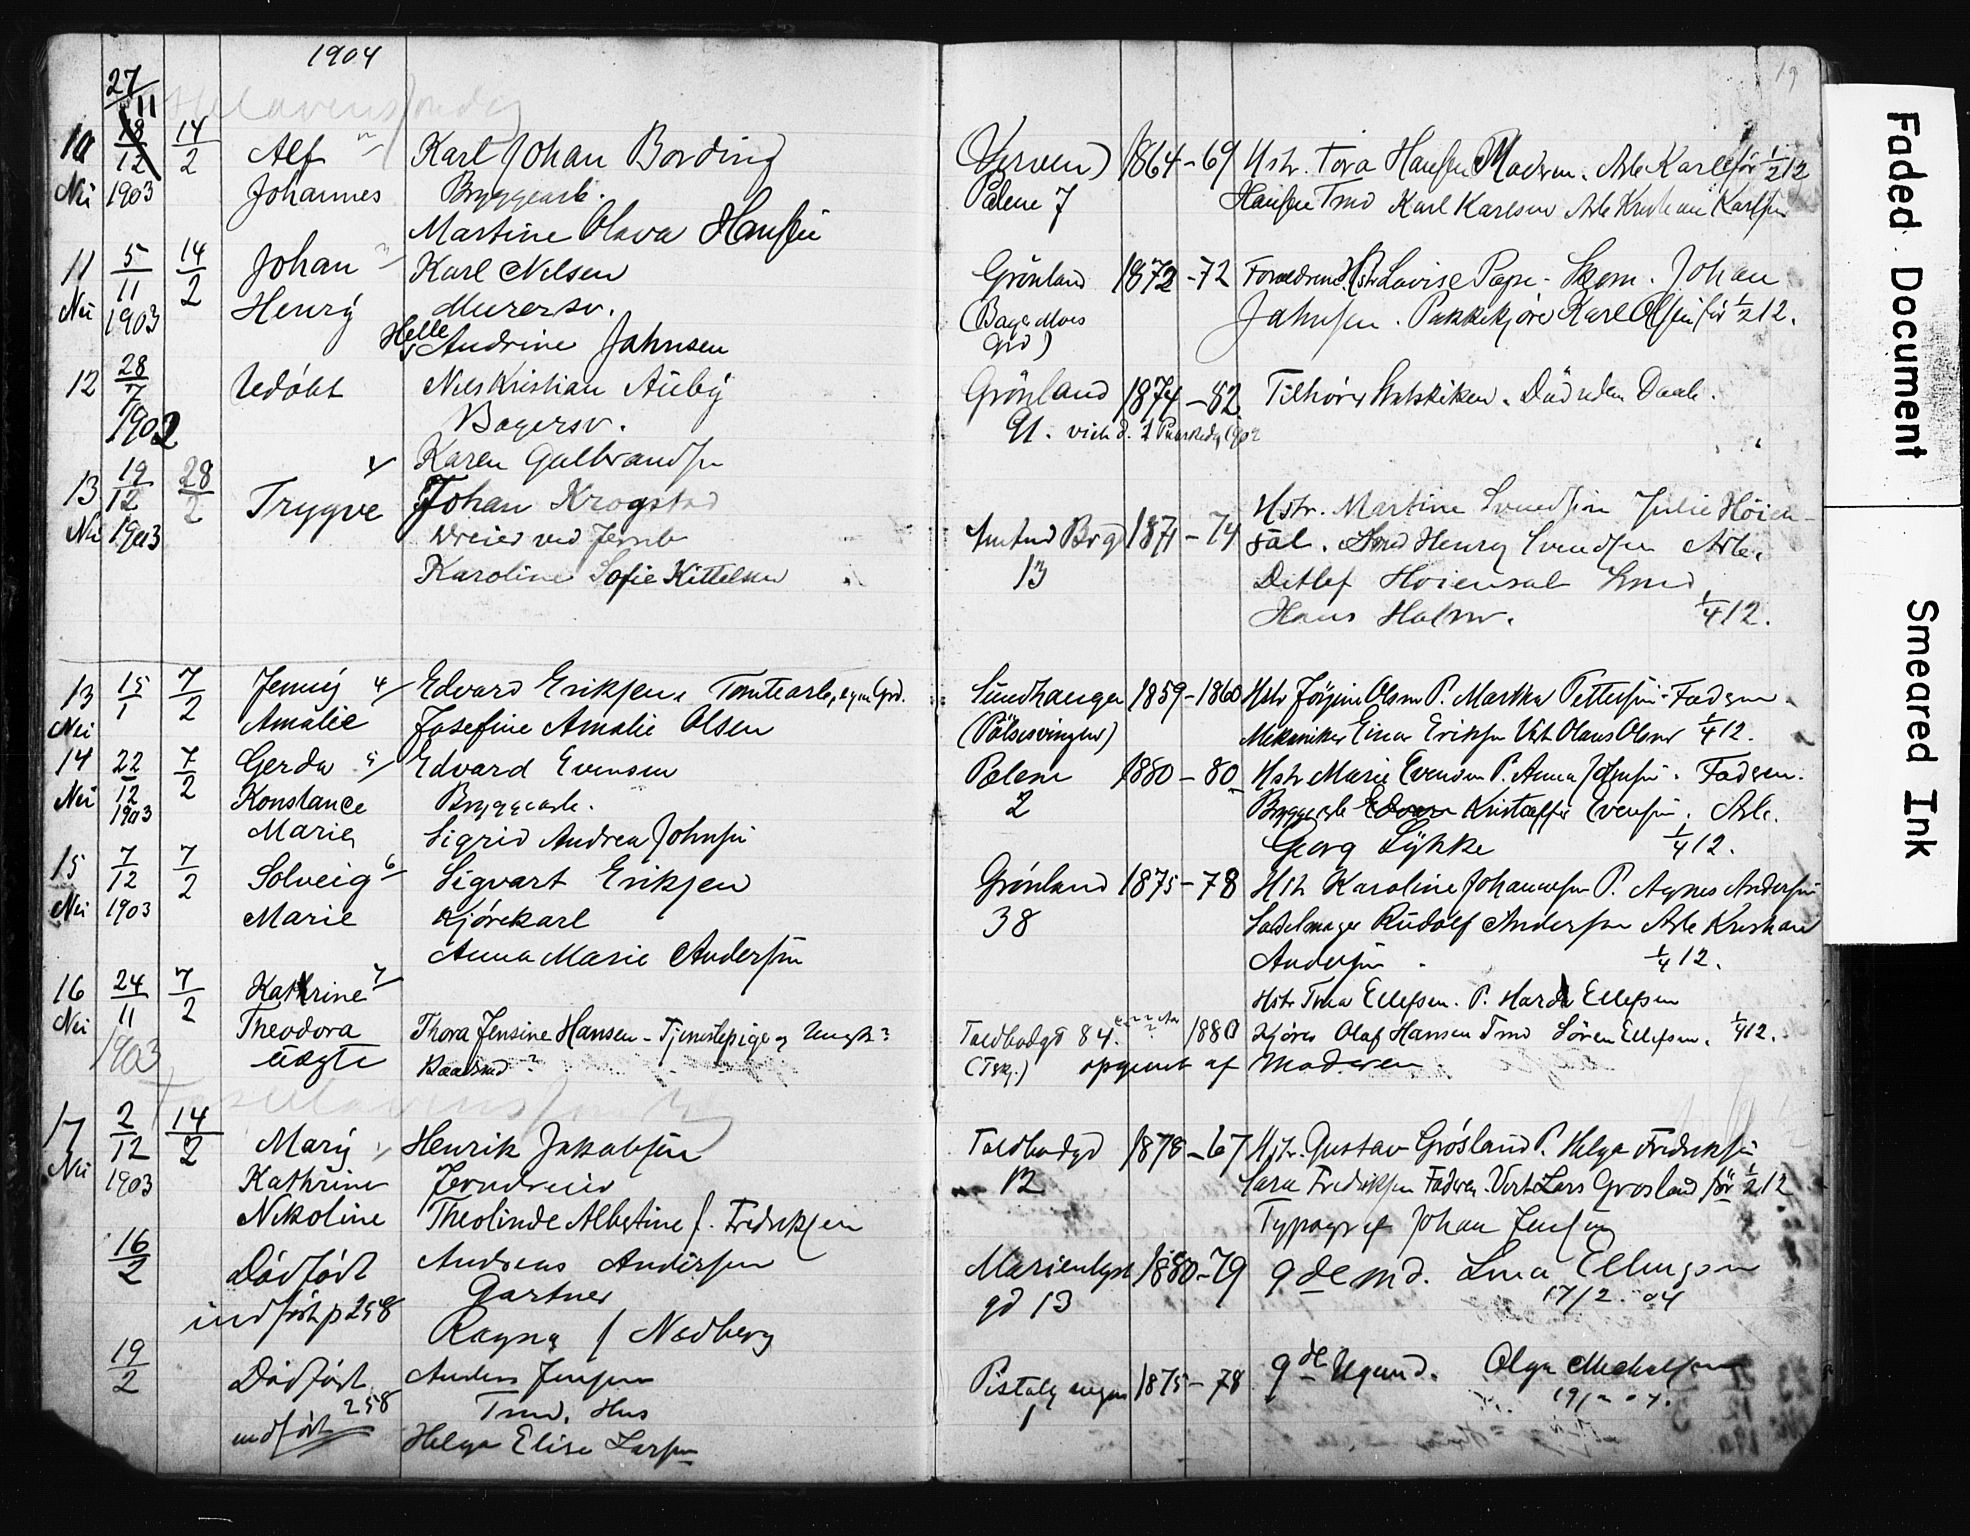 1904
19
27/11
10 18/12 14/2 Alf Karl Johan Bording (Verven) 1864-69 Hstr. Tora Hansen Moderen. Arb Karl før 1/2 12
Nei 1903 Johannes Bryggearb. Palene 7 Hansen Tmd Karl Karlsen Arb Kristian Karlsen
Martine Olava Hansen
11 5/11 14/2 Johan Karl Nilsen Grønland 1872-72 Forældrene Hstr Lovise Pape - Skom. Johan
Nei 1903 Henry Murersv. (Bager Moes Jahnsen. Pakkekjører Karl Olsen før 1/2 12.
Helle Andrine Jahnsen Grd)
12 28/7 Udøbt Nils Kristian Auby Grønland 1874-82 Tilhører Statskirken. Død uden Daab.
1902 Bagersv. 21. viede d. 2 Paaskedg 1902
Karen Gulbrandsen
13 19/12 28/2 Trygve Johan Krogstad Hstr. Martine Svendsen Julie Höien-
Nei 1903 Dreier ved Jernb Amtmd Bvg 1871-74 sal. Smed Henry Svendsen Arb.
Karoline Sofie Kittelsen 13 Ditlef Hoiensal Smed
Hans Halvor. 1/4 12.
13 15/1 7/2 Jenny 4 Edvard Eriksen, Tomtearb, egen Grd. Sundhaugen 1859-1860 Hstr Jörgine Olsen P. Martha Pettersen - Faderen
Nei Amalie Josefine Amalie Olsen (Pölsesvingen) Mekaniker Einar Eriksen Vert Olaus Olsen 1/4 12.
14 22/12 7/2 Gerda 5 Edvard Evensen Palene 1880-80 Hstr Marie Evensen P. Anna Johnsen. Faderen.
Nei 1903 Konstance Bryggearb. 2 Bryggearb Edvar Kristoffer Evensen. Arb.
Marie Sigrid Andrea Johnsen Georg Lykke 1/4 12.
15 7/12 7/2 Solveig 6 Sigvart Eriksen Grønland 1875-78 Hstr Karoline Johannesen P. Agnes Andersen
Nei 1903 Marie Kjørekarl 38 Sadelmager Rudolf Andersen Arb Kristian
Anna Marie Andersen Andersen. 1/4 12.
16 24/11 7/2 Kathrine 7 Hstr Tina Ellefsen. P. Harda Ellefsen
Nei Theodora Thora Jensine Hansen - Tjenestepige og Ungk? Toldbodgt 84. 1880 Kjører Olaf Hansen Tmd Sören Ellefsen. 1/4 12.
1903 uægte Baadsmd? (Tskj.) opgivet af Moderen
17 2/12 14/2 Mary Henrik Jakobsen Toldbodgd 1878-67 Hstr. Gustav Grösland P. Helga Fredriksen
Nei 1903 Kathrine Jerndreier 12 Sara Fredriksen Faderen. Vert Lars Grosland før 1/2 12
Nikoline Theolinde Albertine f. Fredriksen Typograf Johan Jensen
16/2 Dødfødt Andreas Andersen Marienlyst 1880-79 gde md. Lina Ellingsen
indført p 258 Gartner gd 13 17/2. 04
Ragna f Nedberg
19/2 Dødfødt Anders Jensen Pistolsvingen 1875-78 gde Ugund. Olga Mickelsen
indført 258 Tmd. Hus 1 19/2 04.
Helga Elise Larsen
Faded Document
Smeared Ink